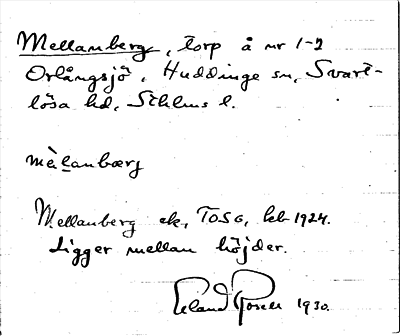 Mellanberg, torp å nr 1-2
Orlångsjö, Huddinge sn, Svart-
lösa hd, Sthlms l.
mèlanbærg
Mellanberg ek, TOSG, kb 1924.
Ligger mellan höjder.
Erland Rosell 1930.